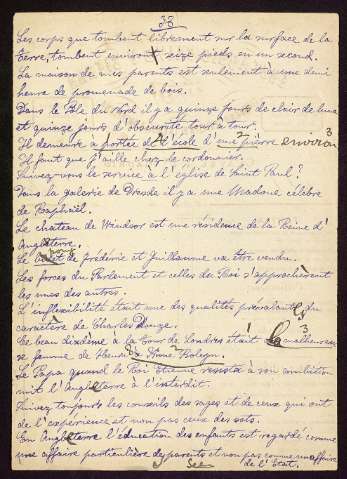 33
Les corps que tombant librement sur la surface de la
terre, tombent environt seize pieds en un second.
La maison de mes parents est seulement a une demi
heure de promenade de bois.
Dans le Pôle du Nord il y a quinze jours de clair de lune
et quinze jours d'obscurité tour à tour.
Il demeure a portée de l'école d'une pierre environ 3
Il faut que j'aille chez le cordonnier.
Suivez-vous le service à l'église de Saint Paul?
Dans la galerie de Dresde il y a une Madone célèbre
de Raphaël.
Le château de Windsor est une résidence de la Reine d'
Angleterre.
Le de frédéric et Guillaume va être vendu.
Les forces du Parlement et celles du Roi s'approchèrent
les unes des autres.
L'inflexibilité était une des qualités prévalantes du
caractère de Charles Douze.
Ce beau dixième à la Tour de Londres était la malheureuse 3
femme de Henri 8 Anne Boleyn.
Le Papa quand le Roi Etienne resista à son ambition
mit l'Angleterre à l'interdit.
Suivez toujours les conseils des sages et de ceux qui ont
de l'expérience et non pas ceux des sots.
En Angleterre l'éducation des enfants est regardé comme
une affaire particulière des parents et non pas comme une affaire
de l'Etat.